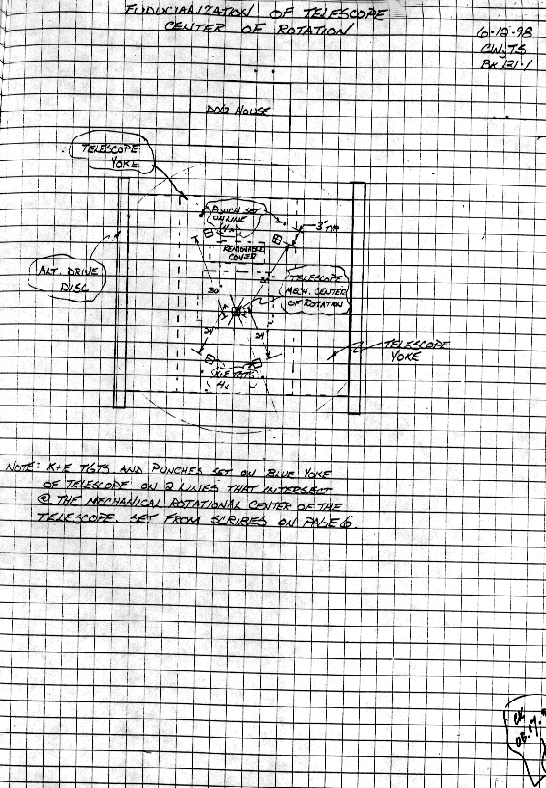 FIDUCIALIZATION OF TELESCOPE
CENTER OF ROTATION
6-12-98
CW, TS
BK 121-1
DOG HOUSE
TELESCOPE
YOKE
PUNCH SET
ON LINE
4x
3" TYP
REMOVABLE
COVER
ALT. DRIVE
DISC
TELESCOPE
MECH. CENTER
OF ROTATION
30"
30"
24"
24"
TELESCOPE
YOKE
K+E TGTS
4x
NOTE: K+E TGTS AND PUNCHES SET ON BLUE YOKE
OF TELESCOPE ON 2 LINES THAT INTERSECT
@ THE MECHANICAL ROTATIONAL CENTER OF THE
TELESCOPE. SET FROM SCRIBES ON PAGE 6.